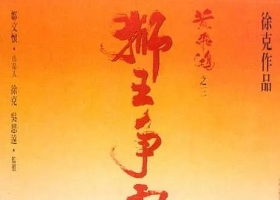 徐克作品
黃飛鴻
之三
獅王爭霸
鄒文懷·出品人 徐克 吳思遠·監製